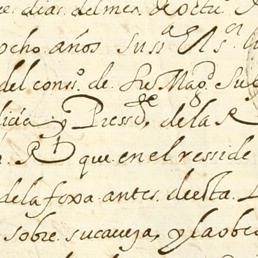 e. dias. del mes. de octu.
ocho. años sus.ª Sª.
del cons.º de. Su Mag.d Su
licia y Pressd.te de la R
R que en el resside
de la foxa antes. deesta.
sobre. su caueza, y la obe